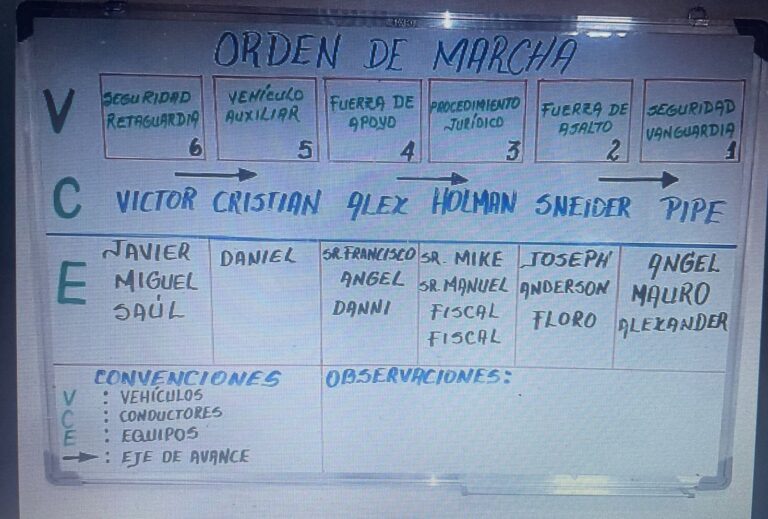 ORDEN DE MARCHA
V
SEGURIDAD
RETAGUARDIA
6
VEHÍCULO
AUXILIAR
5
FUERZA DE
APOYO
4
PROCEDIMIENTO
JURÍDICO
3
FUERZA DE
ASALTO
2
SEGURIDAD
VANGUARDIA
1
C VICTOR CRISTIAN ALEX HOLMAN SNEIDER PIPE
E
JAVIER
MIGUEL
SAÚL
DANIEL
SR. FRANCISCO
ANGEL
DANNI
SR. MIKE
SR. MANUEL
FISCAL
FISCAL
JOSEPH
ANDERSON
FLORO
ANGEL
MAURO
ALEXANDER
CONVENCIONES
V : VEHÍCULOS
C : CONDUCTORES
E : EQUIPOS
→ : EJE DE AVANCE
OBSERVACIONES: